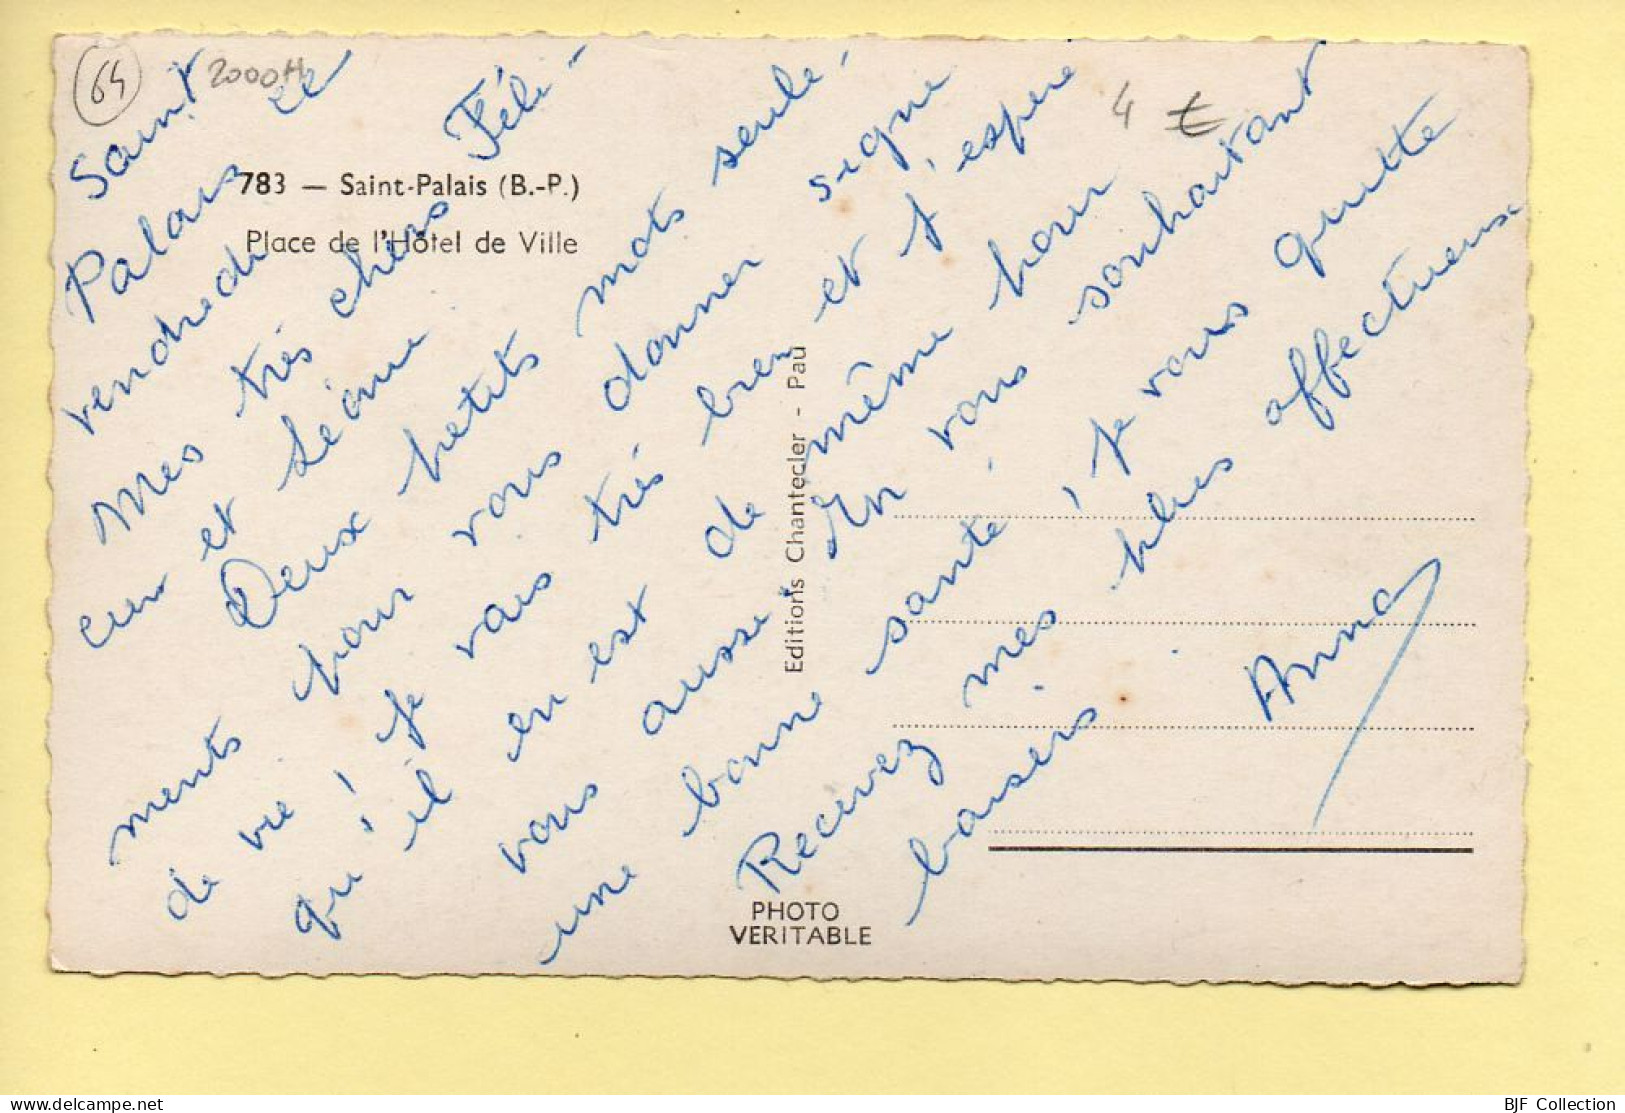 64
2000H
4 €
783 — Saint-Palais (B.-P.)
Place de l'Hôtel de Ville
Saint
Palais ce
vendredi
Mes très chers Féli-
cien et Léonie
Deux petits mots seule-
ments pour vous donner signe
de vie ! je vais très bien et j'espère
qu'il en est de même pour
vous aussi. En vous souhaitant
une bonne santé, je vous quitte
Recevez mes plus affectueux
baisers.
Anna
Editions Chantecler - Pau
PHOTO
VERITABLE
delcampe.net
BJF Collection